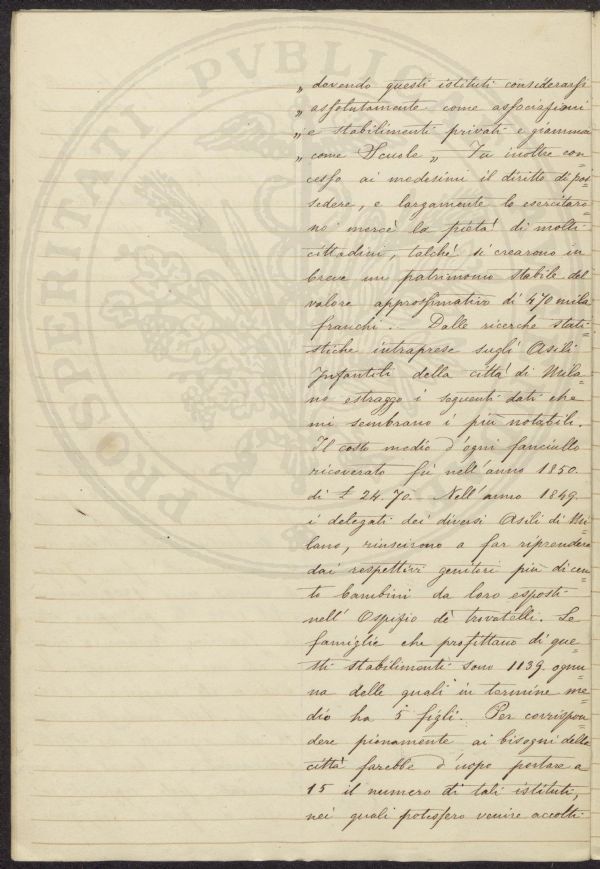 PROSPERITATI PVBLIC
„ dovendo questi istituti considerarsi
„ assolutamente come associazioni
„ e stabilimenti privati e giammai
„ come Scuole „ Fu inoltre con=
cesso ai medesimi il diritto di pos=
sedere, e largamente lo esercitaro=
no mercè la pietà di molti
cittadini, talchè si crearono in
breve un patrimonio stabile del
valore approssimativo di 470 mila
franchi. Dalle ricerche stati=
stiche intraprese sugli Asili
Infantili della città di Mila=
no estraggo i seguenti dati che
mi sembrano i più notabili.
Il costo medio d'ogni fanciullo
ricoverato fù nell'anno 1850.
di £ 24.70. Nell'anno 1849.
i delegati dei diversi Asili di Mi=
lano, riuscirono a far riprendere
dai respettivi genitori più di cen=
to bambini da loro esposti
nell'Ospizio de' trovatelli. Le
famiglie che profittano di que=
sti stabilimenti sono 1139. ognu=
na delle quali in termine me=
dio ha 5 figli. Per corrispon=
dere pienamente ai bisogni della
città farebbe d'uopo portare a
15 il numero di tali istituti,
nei quali potessero venire accolti